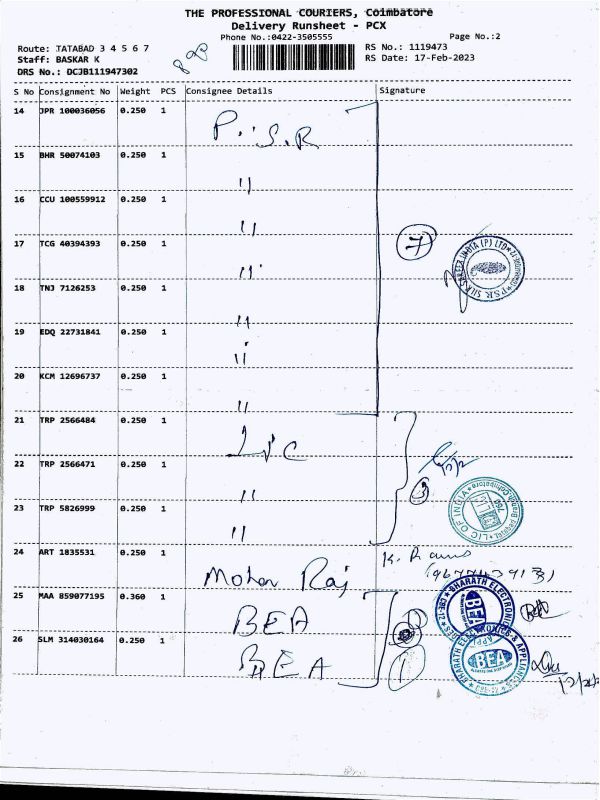 THE PROFESSIONAL COURIERS, Coimbatore
Delivery Runsheet - PCX
Phone No.:0422-3505555 Page No.:2
Route: TATABAD 3 4 5 6 7 RS No.: 1119473
Staff: BASKAR K RS Date: 17-Feb-2023
DRS No.: DCJB111947302
S No Consignment No Weight PCS Consignee Details Signature
14 JPR 100036056 0.250 1 P.S.R
15 BHR 50074103 0.250 1 "
16 CCU 100559912 0.250 1 "
17 TCG 40394393 0.250 1 " 7
18 TNJ 7126253 0.250 1 "
19 EDQ 22731841 0.250 1 "
20 KCM 12696737 0.250 1 "
21 TRP 2566484 0.250 1 LIC
22 TRP 2566471 0.250 1 " 3
LIC OF INDIA
23 TRP 5826999 0.250 1 "
24 ART 1835531 0.250 1 Mohan Raj
25 MAA 859077195 0.360 1 BEA
BHARATH ELECTRONICS
BEA
26 SLM 314030164 0.250 1 BEA 1
BHARATH ELECTRONICS & APPLIANCES
BEA